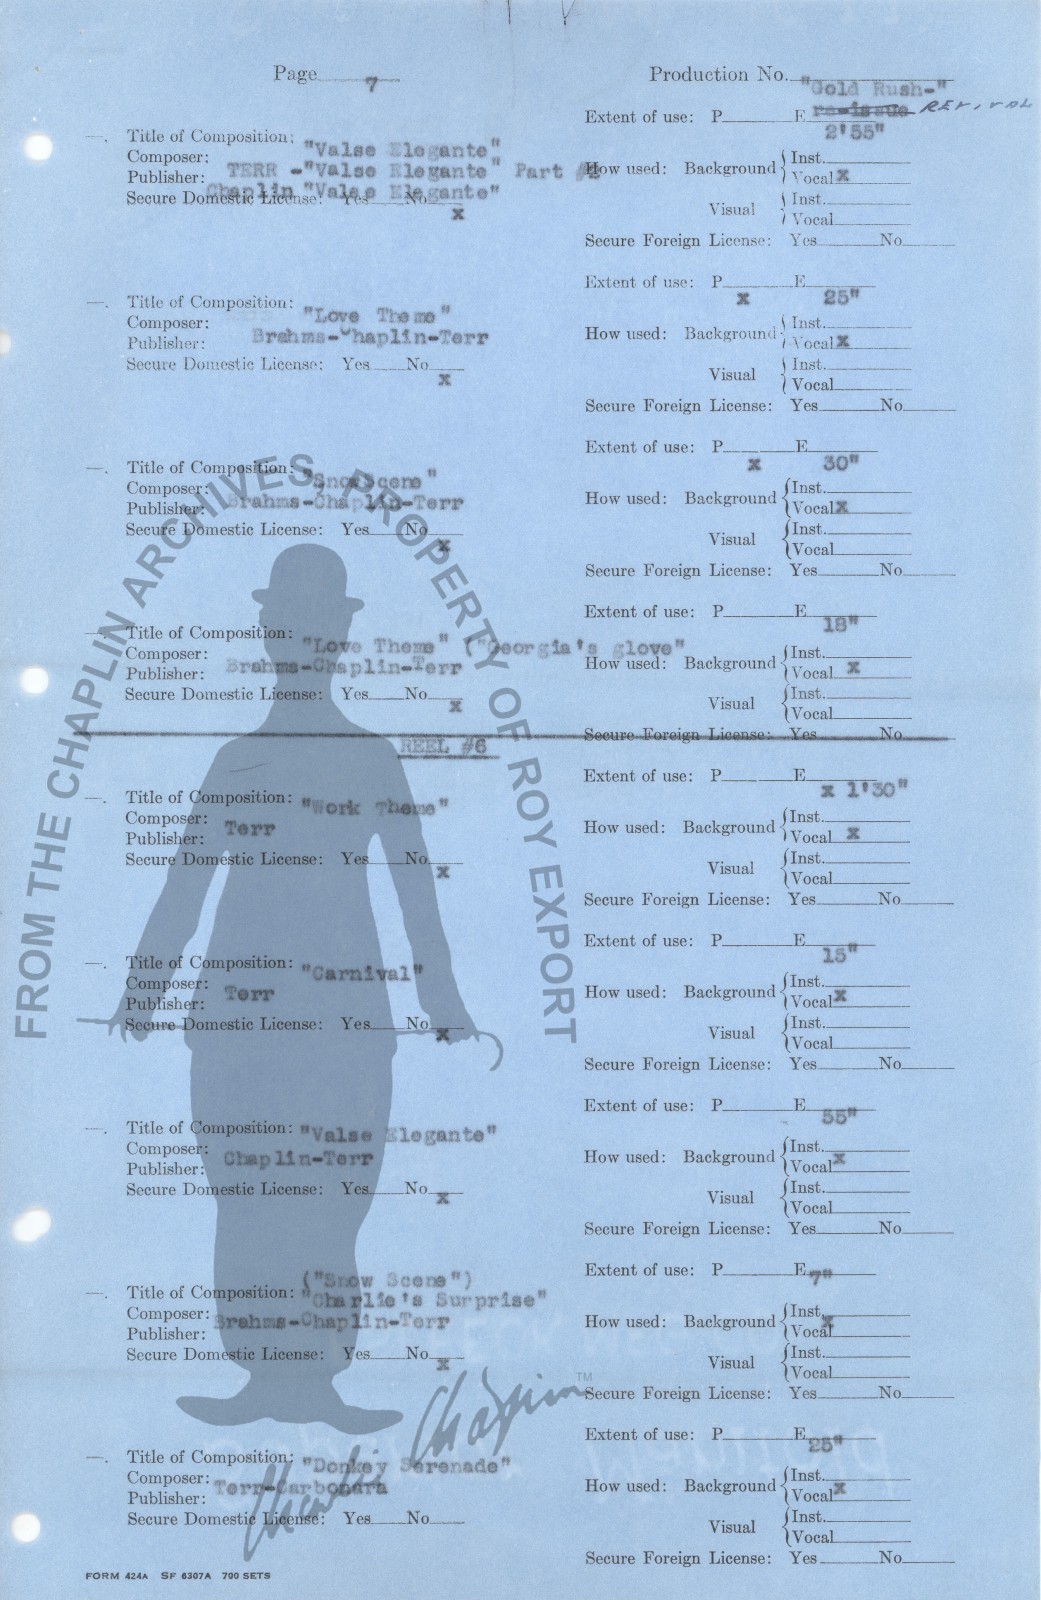 Page 7
Production No. "Gold Rush-"
re-issue REVIVAL
Extent of use: P E 2'55"
—. Title of Composition: "Valse Elegante"
Composer: TERR -"Valse Elegante" Part #2
Publisher: Chaplin "Valse Elegante"
Secure Domestic License: Yes No x
How used: Background Inst.
Vocal x
Visual Inst.
Vocal
Secure Foreign License: Yes No
Extent of use: P x E 25"
—. Title of Composition: "Love Theme"
Composer:
Publisher: Brahms-Chaplin-Terr
Secure Domestic License: Yes No x
How used: Background Inst.
Vocal x
Visual Inst.
Vocal
Secure Foreign License: Yes No
Extent of use: P x E 30"
—. Title of Composition: "Snow Scene"
Composer:
Publisher: Brahms-Chaplin-Terr
Secure Domestic License: Yes No x
How used: Background Inst.
Vocal x
Visual Inst.
Vocal
Secure Foreign License: Yes No
Extent of use: P E 18"
—. Title of Composition: "Love Theme" ("Georgia's glove"
Composer:
Publisher: Brahms-Chaplin-Terr
Secure Domestic License: Yes No x
How used: Background Inst.
Vocal x
Visual Inst.
Vocal
Secure Foreign License: Yes No
REEL #6
Extent of use: P E x 1'30"
—. Title of Composition: "Work Theme"
Composer:
Publisher: Terr
Secure Domestic License: Yes No x
How used: Background Inst.
Vocal x
Visual Inst.
Vocal
Secure Foreign License: Yes No
Extent of use: P E 15"
—. Title of Composition: "Carnival"
Composer:
Publisher: Terr
Secure Domestic License: Yes No x
How used: Background Inst.
Vocal x
Visual Inst.
Vocal
Secure Foreign License: Yes No
Extent of use: P E 55"
—. Title of Composition: "Valse Elegante"
Composer:
Publisher: Chaplin-Terr
Secure Domestic License: Yes No x
How used: Background Inst.
Vocal x
Visual Inst.
Vocal
Secure Foreign License: Yes No
Extent of use: P E 7"
("Snow Scene")
—. Title of Composition: "Charlie's Surprise"
Composer: Brahms-Chaplin-Terr
Publisher:
Secure Domestic License: Yes No x
How used: Background Inst. x
Vocal
Visual Inst.
Vocal
Secure Foreign License: Yes No
Extent of use: P E 25"
—. Title of Composition: "Donkey Serenade"
Composer:
Publisher: Terr-Carbonara
Secure Domestic License: Yes No
How used: Background Inst.
Vocal x
Visual Inst.
Vocal
Secure Foreign License: Yes No
FORM 424A SF 6307A 700 SETS
FROM THE CHAPLIN ARCHIVES, PROPERTY OF ROY EXPORT
Charlie Chaplin TM